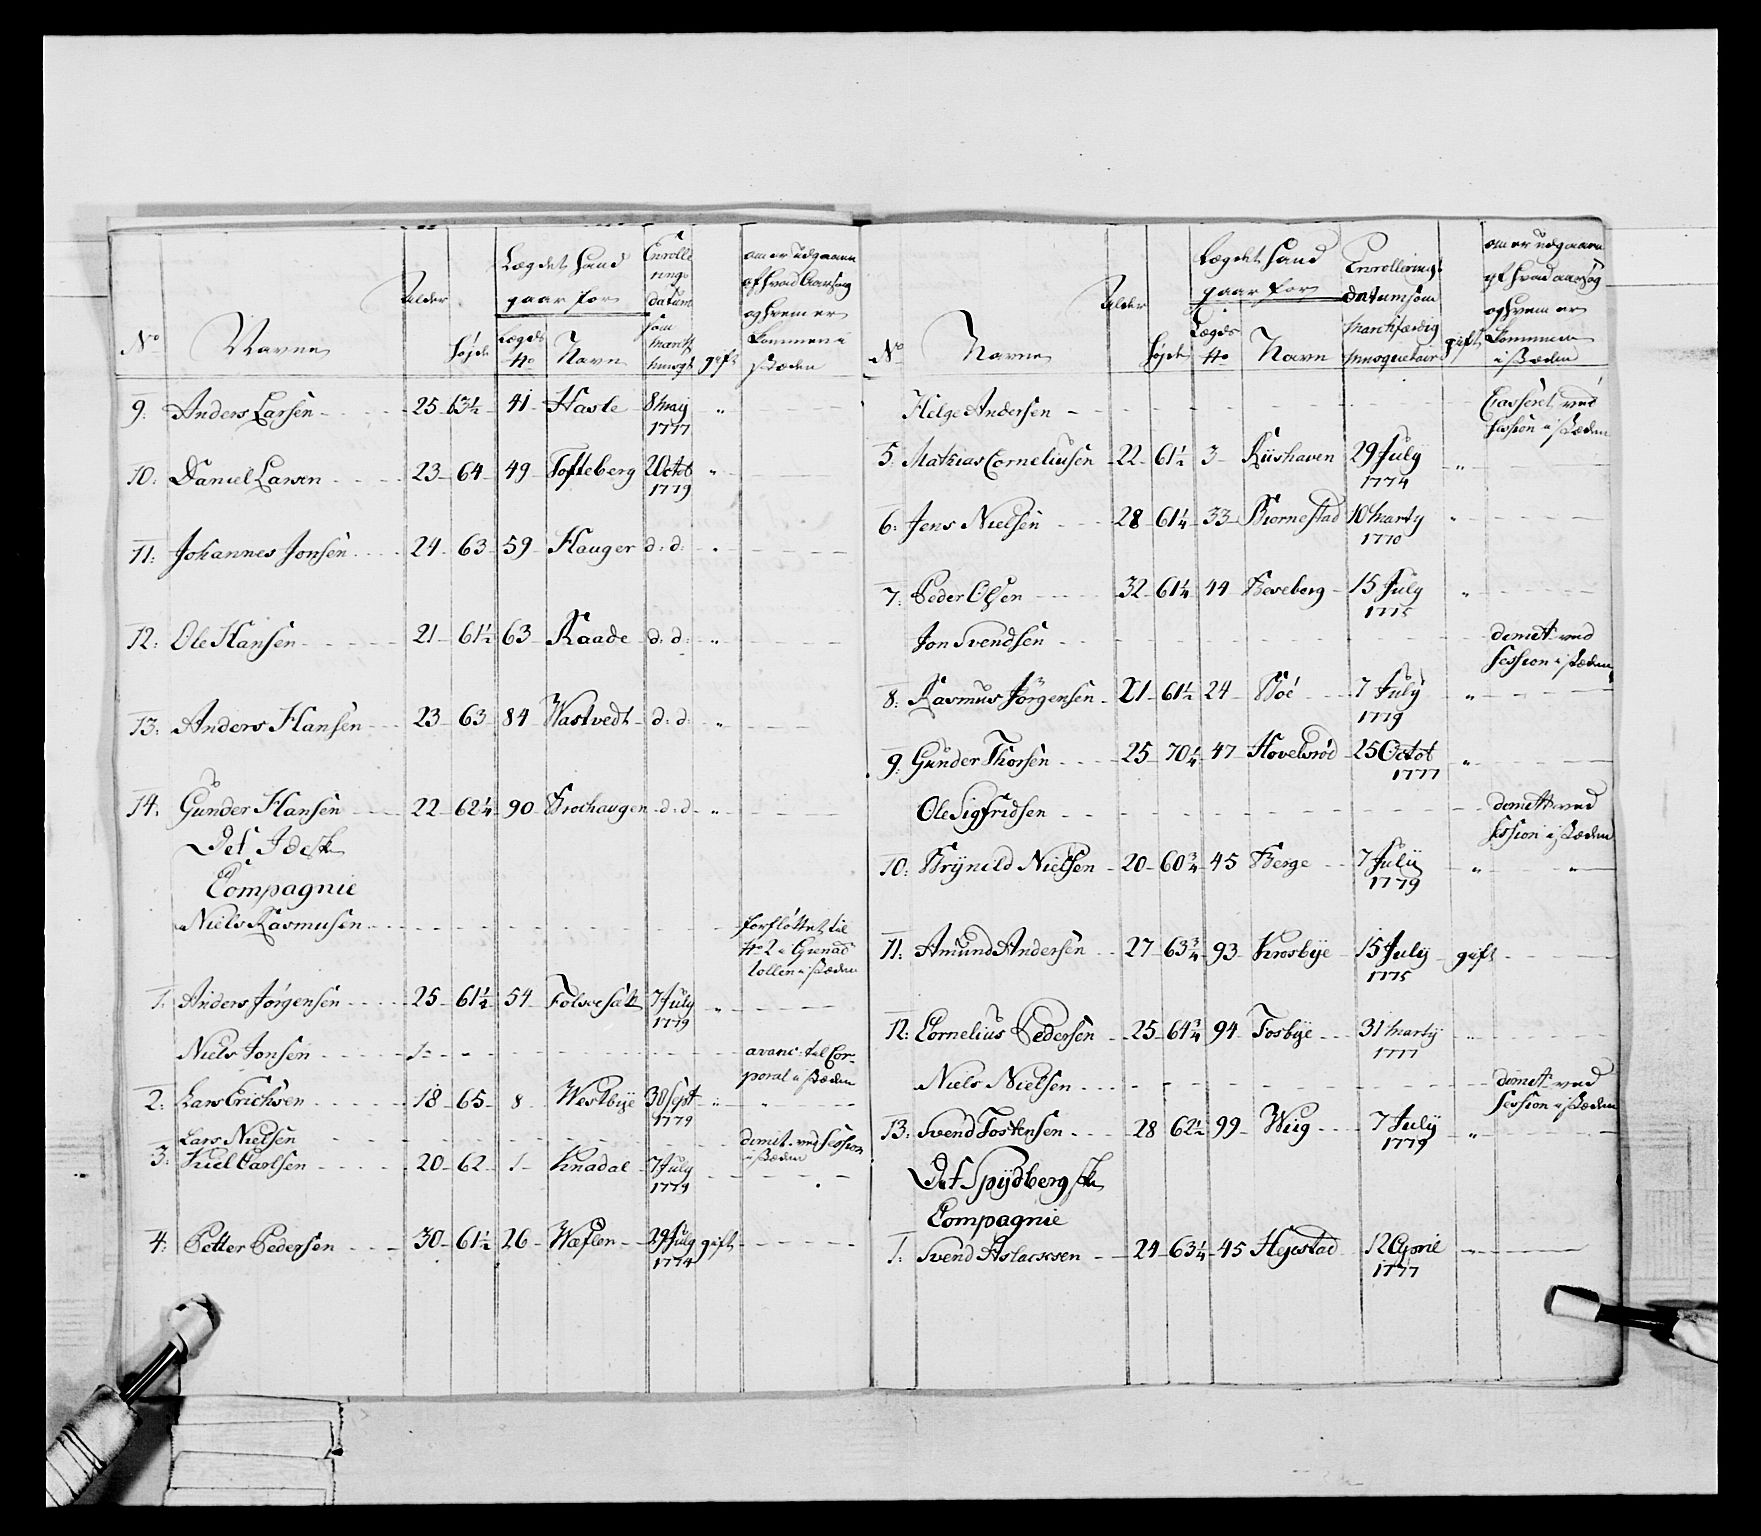 No
Navne
Alder
Højde
Lægdet hand
gaar for
Lægds
No
Navn
Enrolle
rings
datum
som
gift
om er udgaaen
af hvad Aarsag
og hvem er
kommen i
Stæden
9: Anders Larsen 25 63½ 41 Hasle 8 Maij „
1777
10: Daniel Larsen 23 64 49 Tofteberg 2 Octob „
1779
11: Johannes Jonsen 24 63 59 Hauger d: d: „
12: Ole Hansen 21 61½ 63 Raade d: d: „
13: Anders Hansen 23 63 84 Wastvedt d: d: „
14: Gunder Hansen 22 62¼ 90 Brochaugen d: d „
Det Ideske
Compagnie
Niels Rasmusen forfløttet til
No 2 i Grenad
tollen i Stæden
1. Anders Jørgensen 25 61¼ 54 Folvesæt 7 July „
1779
Niels Jonsen 1 avanc: til Cor-
poral i Stæden
2: Lars Erichsen 18 65 8 Westbye 30 Sept „
1779
Lars Nielsen dimit. ved Session
i Stæden
3: Kiel Carlsen 20 62 1 Knadal 7 July
1779
4: Petter Pedersen 30 61½ 26 Wæflen 29 July gift
1774
No
Navne
Alder
Højde
Lægdet hand
gaar for
Lægds
No
Navn
Enrollerings
datum som
Marchfærdig
Musqueteer
gift
om er udgaaen
af hvad aarsag
og hvem er
kommen
i Stæden
Helge Andersen Casseret ved
Session i Stæden
5: Mathias Corneliusen 22 61½ 3 Riishaven 29 July „
1774
6: Jens Nielsen 28 61¼ 33 Biørnestad 10 Marty „
1770
7: Peder Olsen 32 61¼ 44 Beveberg 15 July „
1775
Jon Svendsen dimet ved
Session i Stæden
8: Rasmus Jørgensen 21 61½ 24 Boe 7 July „
1779
9: Gunder Thorsen 25 70¼ 47 Hovelsrød 25 Octob „
1777
Ole Sigfridsen dimett ved
Session i Stæden
10: Brynild Nielsen 20 60¾ 45 Berge 7 July „ „
1779
11: Amund Andersen 27 63¾ 93 Krosbye 15 July gift
1775
12: Cornelius Pedersen 25 64¾ 94 Tosbye 31 Marty „
1777
Niels Nielsen dimet ved
Session i Stæden
13: Svend Tostensen 28 62½ 99 Wiig 7 July „
1779
Det Spydbergske
Compagnie
1: Svend Aslacksen 24 63¼ 45 Hejestad 12 April „
1777